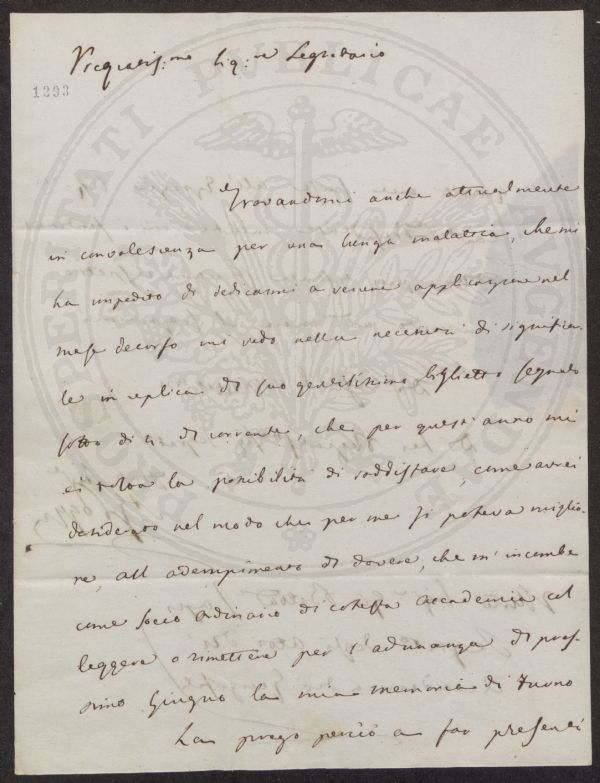 Pregiatis:mo Sig:re Segretario
1293
PROSPERITATI PUBLICAE AUGENDAE
Trovandomi anche attualmente
in convalescenza per una lunga malattia, che mi
ha impedito di dedicarmi a veruna applicazione nel
mese decorso mi vedo nella necessità di significar
le in replica di suo gentilissimo biglietto segnato
sotto di 4 di corrente, che per quest' anno mi
è tolta la possibilità di soddisfare, come avrei
desiderato nel modo che per me si poteva miglio-
re, all adempimento di dovere, che m' incombe
come socio ordinario di cotesta accademia col
leggere o rimettere per l' adunanza di pros-
simo Giugno la mia memoria di Turno
La prego perciò a far presenti